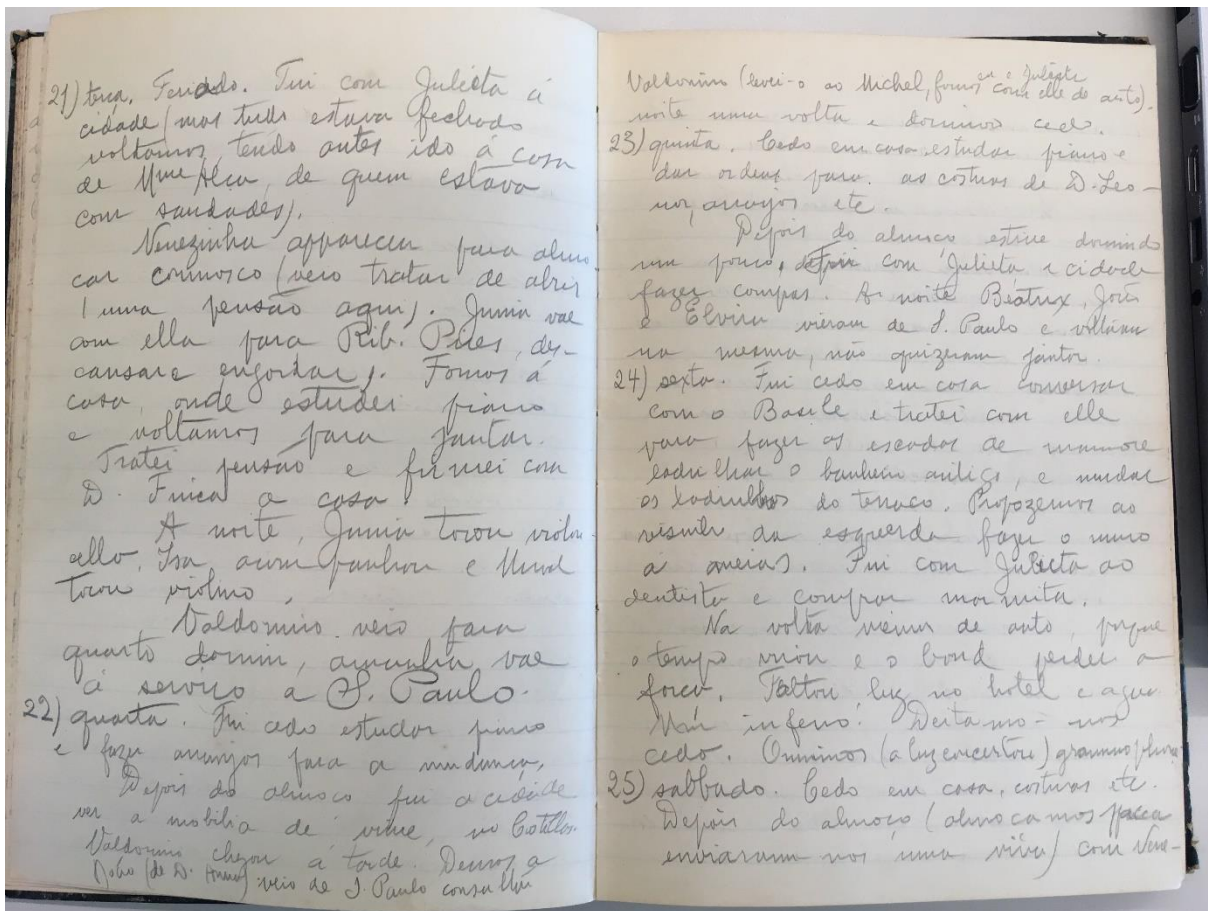 21) terça. Feriado. Fui com Julieta á
cidade (mas tudo estava fechado
voltamos, tendo antes ido á casa
de Mme Alca, de quem estava
com saudades).
Nenezinha appareceu para almo-
çar comnosco (veio tratar de abrir
uma pensão aqui). Junia vae
com ella para Rib. Pires, des-
cansar e engordar). Fomos á
casa, onde estudei piano
e voltamos para jantar.
Tratei pensão e firmei com
D. a casa.
A noite, Junia tocou violon-
cello, Isa acompanhou e
tocou violino.
Valdomiro veio para
quarto dormir, amanhã vae
á serviço á S. Paulo.
22) quarta. Fui cedo estudar piano
e fazer arranjos para a mudança.
Depois do almoço fui a cidade
ver a mobilia de vime, no
Valdomiro chegou á tarde. Demos a
(de D. ) veio de S. Paulo consultar
Valdomiro (levei-o ao Michel, fomos eu e Julieta com elle de auto).
noite uma volta e dormimos cedo.
23) quinta. Cedo em casa estudar piano e
dar ordens para as costuras de D. Leo-
nor, arranjos etc.
Depois do almoço estive dormindo
um pouco, fui com Julieta a cidade
fazer compras. A noite Beatrix, João
e Elvira vieram de S. Paulo e voltaram
na mesma, não quizeram jantar.
24) sexta. Fui cedo em casa conversar
com o Basile e tratei com elle
para fazer as escadas de marmore
ladrilhar o banheiro antigo, e mudar
os ladrilhos do terraço. Propozemos ao
visinho da esquerda fazer o muro
á meias). Fui com Julieta ao
dentista e comprar marmita.
Na volta viemos de auto, porque
o tempo virou e o bond perdeu a
força. Faltou luz no hotel e agua
inferno! Deitamo-nos
cedo. Ouvimos (a luz concertou) grammophone
25) sabbado. Cedo em casa, costuras etc.
Depois do almoço (almoçamos
enviaram nos uma ) com Nene-